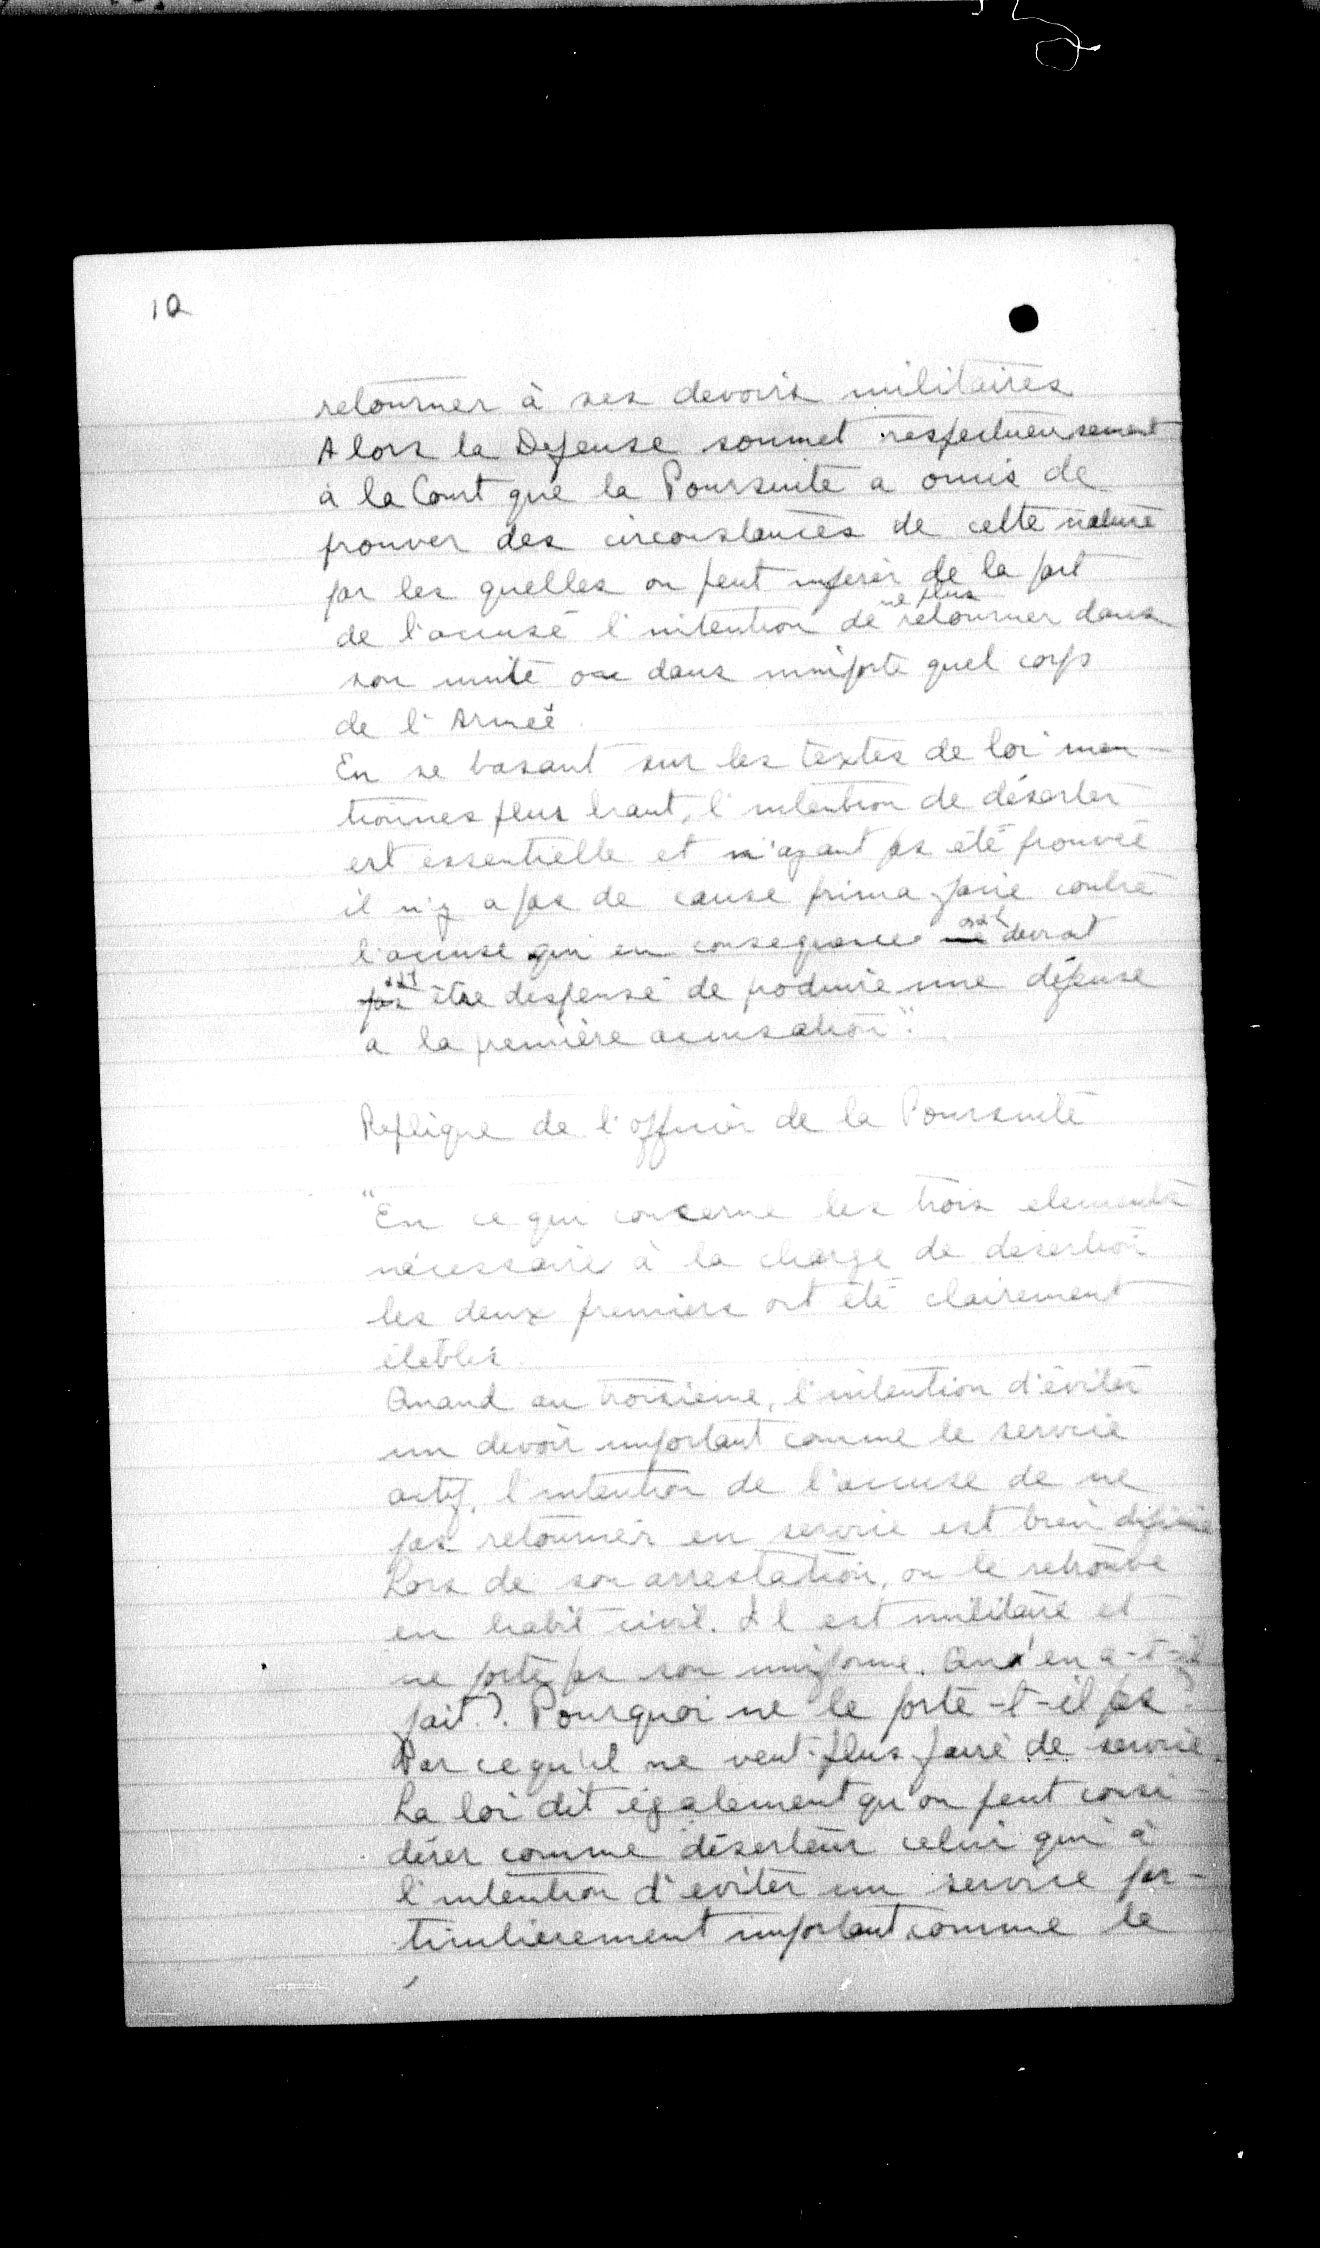 10
retourner à ses devoirs militaires
Alors la Defense soumet respectueusement
à la Court que la Poursuite a omis de
prouver des circonstances de cette nature
par les quelles on peut inferer de la part
de l'accusé l'intention de ne plus retourner dans
son unité ou dans nimporte quel corps
de l'Armeé.
En se basant sur les textes de loi men-
tionnes plus haut, l'intention de déserter
est essentielle et n'ayant pas été prouveé
il n'y a pas de cause prima facie contre
l'accuse qui en consequence devrait
pas être dispensé de produire une défense
a la première accusation".
Replique de l'officier de la Poursuite
"En ce qui concerne les trois elements
nécessaire à la charge de desertion
les deux premiers ont été clairement
établis
Quand au troisieme, l'intention d'éviter
un devoir important comme le service
actif, l'intention de l'accuse de ne
pas retourner en service est bien definie
Lors de son arrestation, on le retrouve
en habit civil. Il est militaire et
ne porte pas son uniforme. Qu'en a-t-il
fait?. Pourquoi ne le porte-t-il pas?
Par ce qu'il ne veut plus faire de service.
La loi dit également qu'on peut consi-
dérer comme déserteur celui qui à
l'intention d'eviter un service par-
ticulierement important comme le